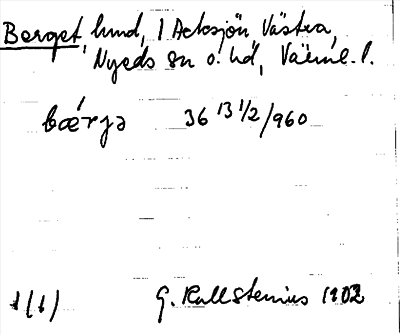 Berget, hmd, 1 Acksjön Västra,
Nyeds sn o. hd, Värml. l.
bærjə 36 13 1/2/960
1(1) G. Kallstenius 1902